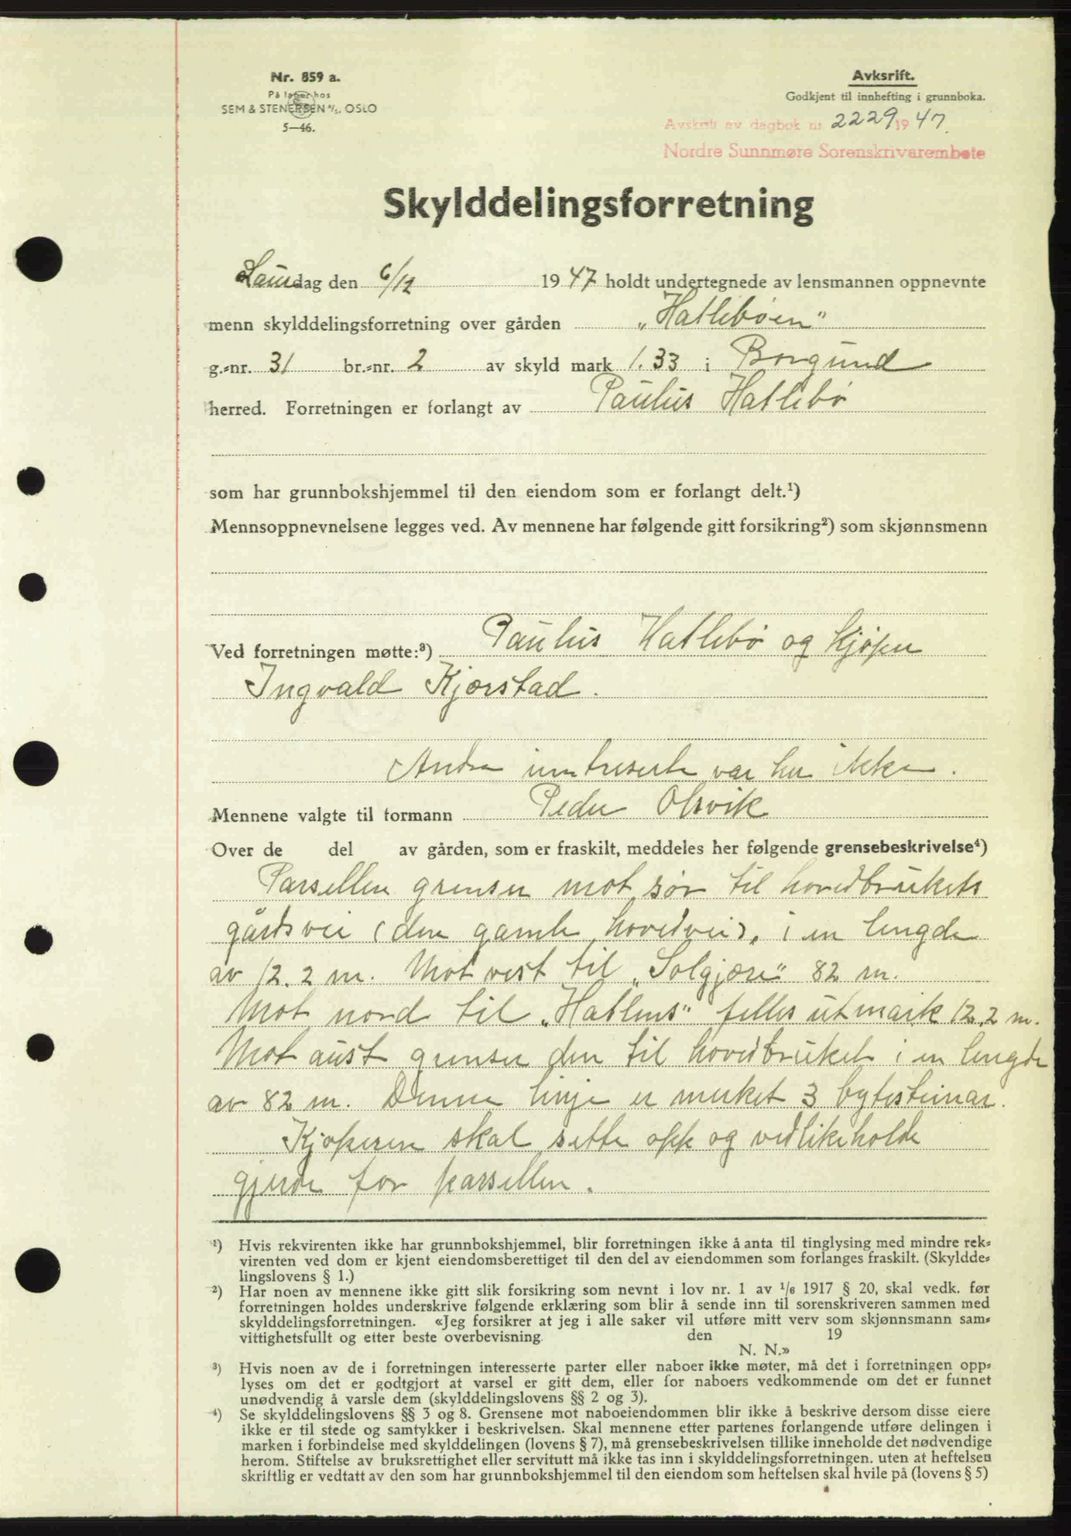 Nr. 859 a.
På lager hos
SEM & STENERSEN A/S. OSLO
5—46.
Avksrift.
Godkjent til innhefting i grunnboka.
Avskrift av dagbok nr 2229 1947.
Nordre Sunnmøre Sorenskrivarembete
Skylddelingsforretning
Laurdag den 6/12 1947 holdt undertegnede av lensmannen oppnevnte
menn skylddelingsforretning over gården „Hatlebøen“
g.-nr. 31 br.-nr. 2 av skyld mark 1.33 i Borgund
herred. Forretningen er forlangt av Paulus Hatlebø
som har grunnbokshjemmel til den eiendom som er forlangt delt.¹)
Mennsoppnevnelsene legges ved. Av mennene har følgende gitt forsikring²) som skjønnsmenn
Ved forretningen møtte:³) Paulus Hatlebø og kjøper
Ingvald Kjørstad.
Andre interesserte var her ikke.
Mennene valgte til formann Peder Olsvik
Over de del av gården, som er fraskilt, meddeles her følgende grensebeskrivelse⁴)
Parsellen grenser mot sør til hovedbrukets
gårdsvei (den gamle hovedvei), i en lengde
av 12.2 m. Mot vest til „Solgjøre“ 82 m.
Mot nord til „Hatlens“ felles utmark 12,2 m.
Mot aust grenser den til hovedbruket i en lengde
av 82 m. Denne linje er merket 3 bytesteinar.
Kjøperen skal sette opp og vedlikeholde
gjerde for parsellen.
¹) Hvis rekvirenten ikke har grunnbokshjemmel, blir forretningen ikke å anta til tinglysing med mindre rek-
virenten ved dom er kjent eiendomsberettiget til den del av eiendommen som forlanges fraskilt. (Skyldde-
lingslovens § 1.)
²) Har noen av mennene ikke gitt slik forsikring som nevnt i lov nr. 1 av 1/6 1917 § 20, skal vedk. før
forretningen holdes underskrive følgende erklæring som blir å sende inn til sorenskriveren sammen med
skylddelingsforretningen. «Jeg forsikrer at jeg i alle saker vil utføre mitt verv som skjønnsmann sam-
vittighetsfullt og etter beste overbevisning den 19
N. N.»
³) Hvis noen av de i forretningen interesserte parter eller naboer ikke møter, må det i forretningen opp-
lyses om det er godtgjort at varsel er gitt dem, eller for naboers vedkommende om det er funnet
unødvendig å varsle dem (skylddelingslovens §§ 2 og 3).
⁴) Se skylddelingslovens §§ 3 og 8. Grensene mot naboeiendommen blir ikke å beskrive dersom disse eiere
ikke er til stede og samtykker i beskrivelsen. Skal mennene etter partenes forlangende utføre delingen i
marken i forbindelse med skylddelingen (lovens § 7), må grensebeskrivelsen tillike inneholde det nødvendige
herom. Stiftelse av bruksrettighet eller servitutt må ikke tas inn i skylddelingsforretningen. uten at heftelsen
skriftlig er vedtatt av den som har grunnbokshjemmel til den eiendom som heftelsen skal hvile på (lovens § 5)